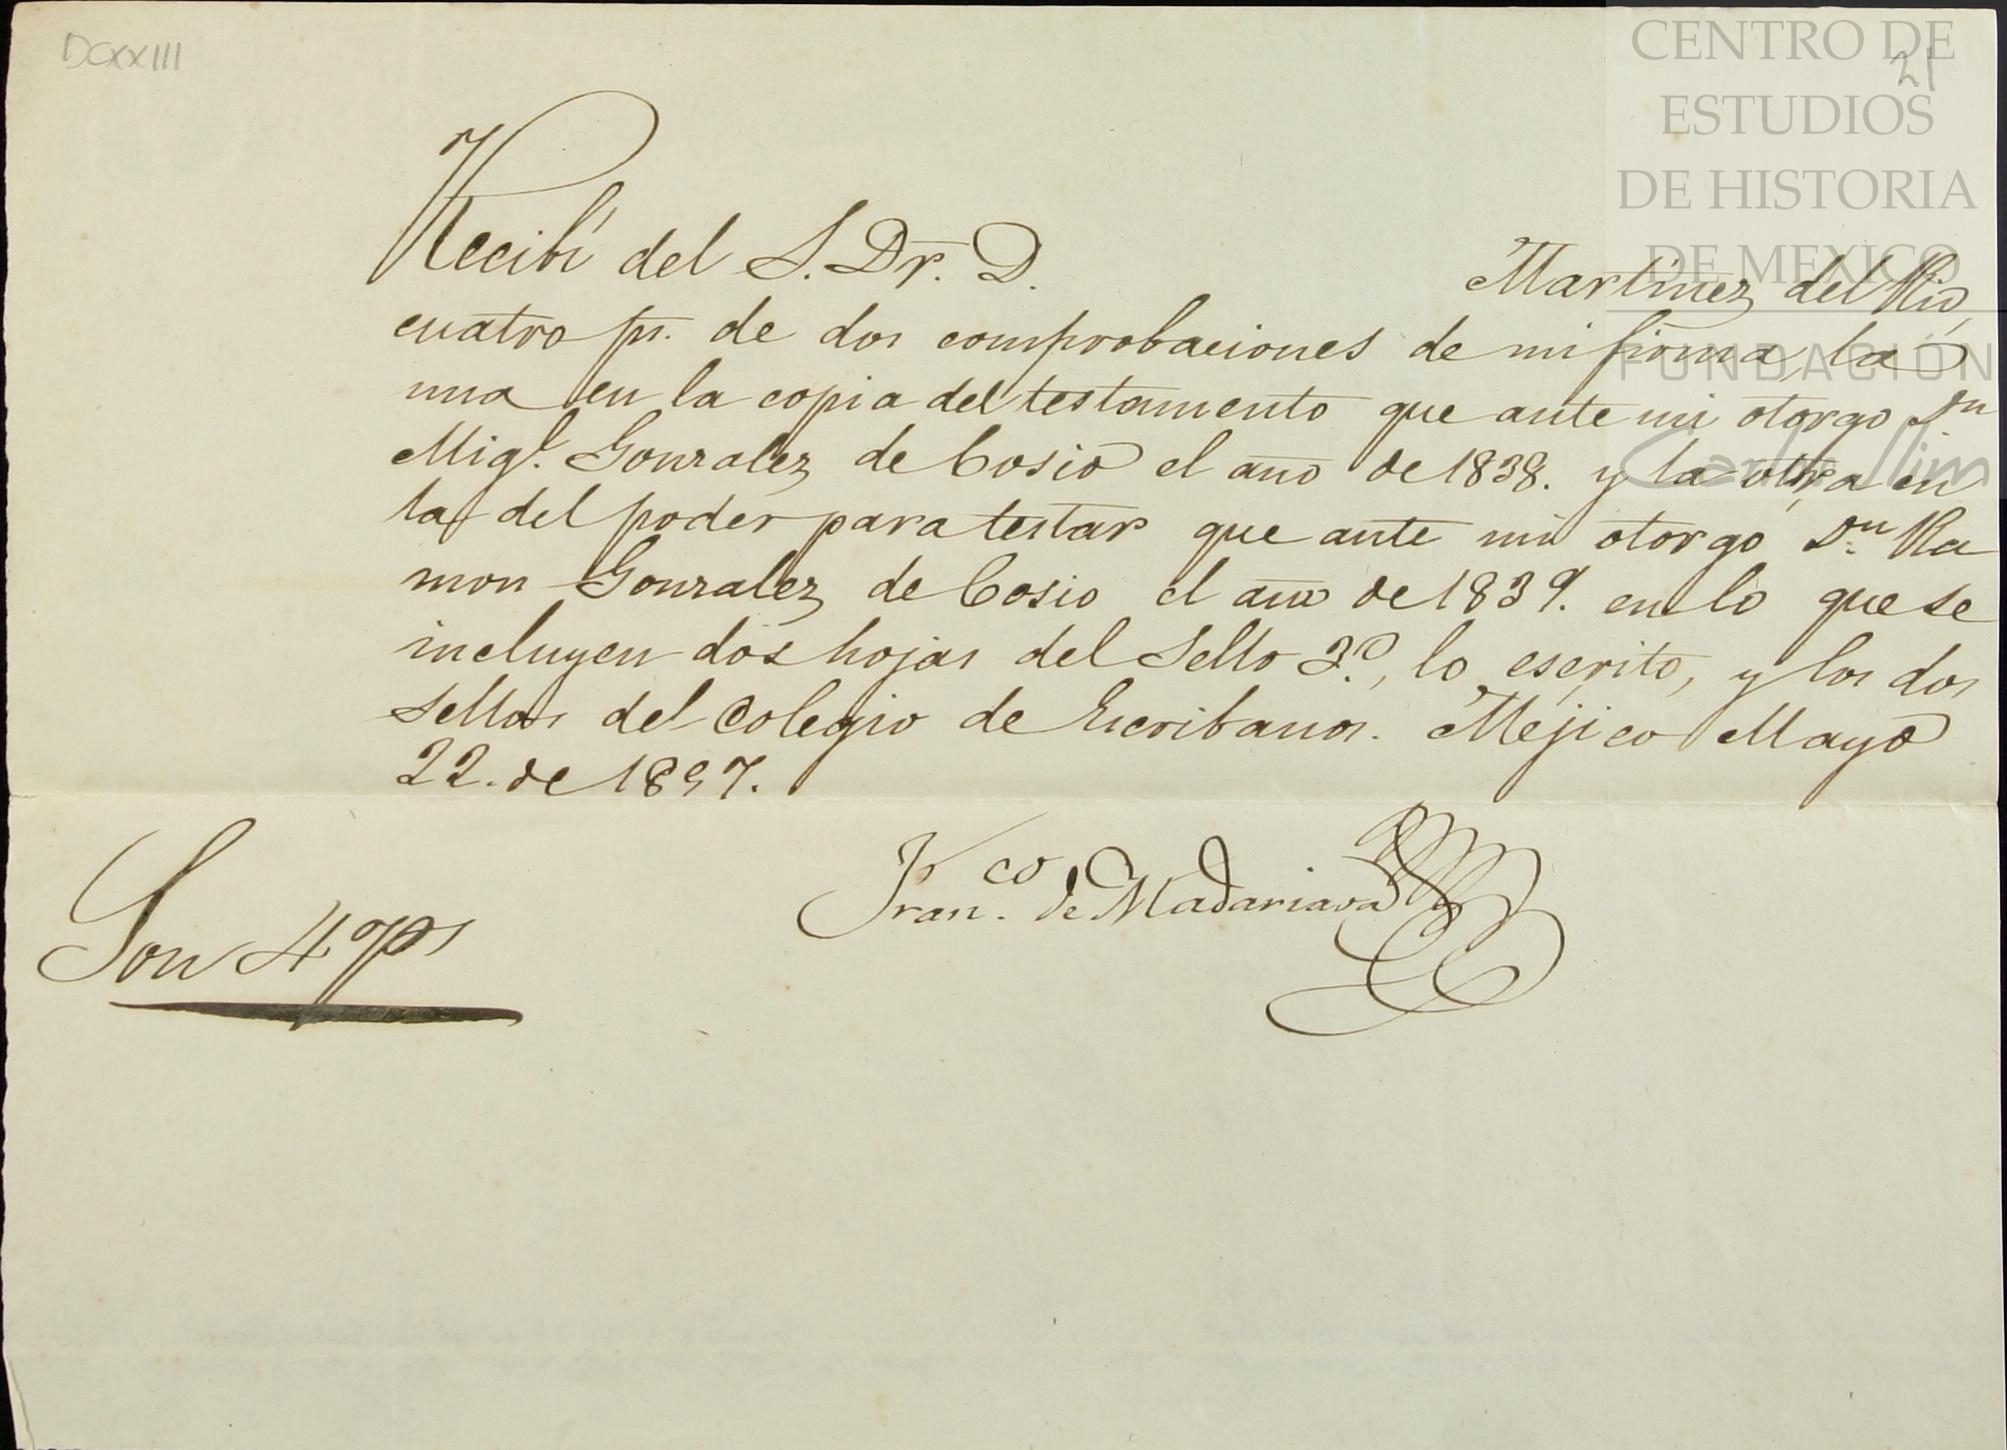 DCXXIII
21
CENTRO DE
ESTUDIOS
DE HISTORIA
DE MEXICO
FUNDACIÓN
Carlos Slim
Recibí del S. Dr. D. Martinez del Rio,
cuatro ps. de dos comprobaciones de mi firma, la
una en la copia del testamento que ante mi otorgo Dn
Migl. Gonzalez de Cosio el año de 1838. y la otra en
la del poder para testar que ante mi otorgó Dn. Ra
mon Gonzalez de Cosio el año de 1839. en lo que se
incluyen dos hojas del Sello 3º., lo escrito, y los dos
sellos del Colegio de Escribanos. Méjico Mayo
22. de 1857.
Franco. de Madariaga
Son 4 ps